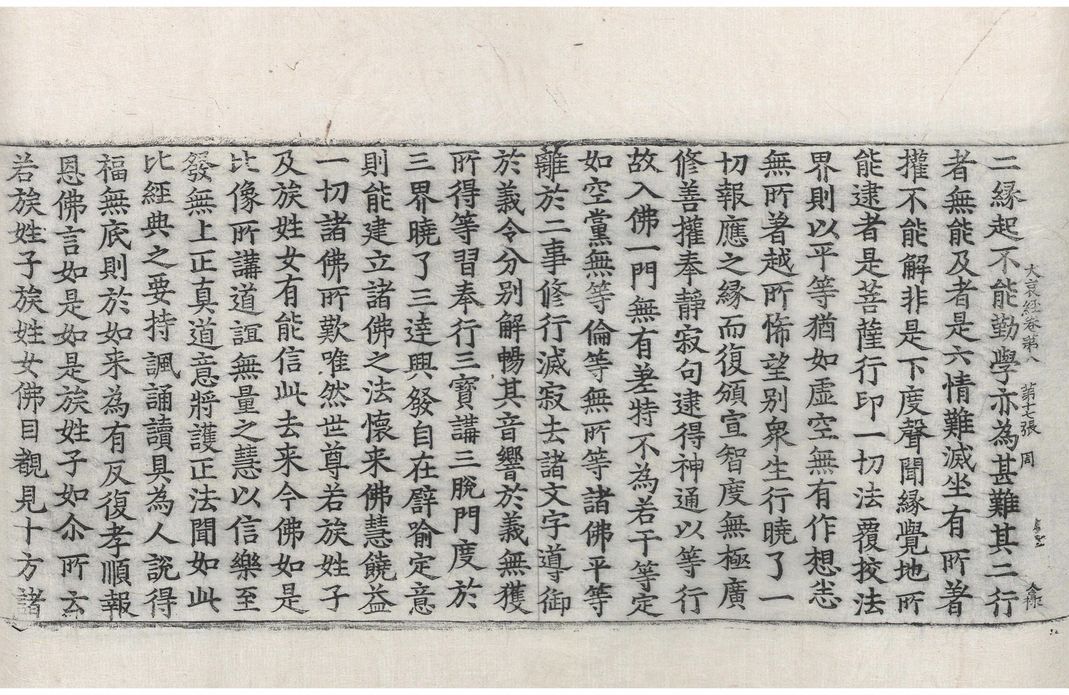 大哀經卷第八　第十七張　周
二緣起不能勤學亦為甚難其二行
者無能及者是六情難滅坐有所著
權不能解非是下度聲聞緣覺地所
能逮者是菩薩行印一切法覆挍法
界則以平等猶如虛空無有作想恙
無所著越所怖望別衆生行曉了一
切報應之緣而復頒宣智度無極廣
修善權奉靜寂句逮得神通以等行
故入佛一門無有差特不為若干等定
如空黨無等倫等無所等諸佛平等
離於二事修行滅寂去諸文字導御
於義令分別解暢其音響於義無獲
所得等習奉行三寶講三脫門度於
三界曉了三逹興發自在譬喻定意
則能建立諸佛之法懷来佛慧饒益
一切諸佛所歎唯然世尊若族姓子
及族姓女有能信此去来今佛如是
比像所講道誼無量之慧以信樂至
發無上正真道意將護正法聞如此
比經典之要持諷誦讀具為人說得
福無底則於如来為有反復孝順報
恩佛言如是如是族姓子如尒所玄
若族姓子族姓女佛目覩見十方諸